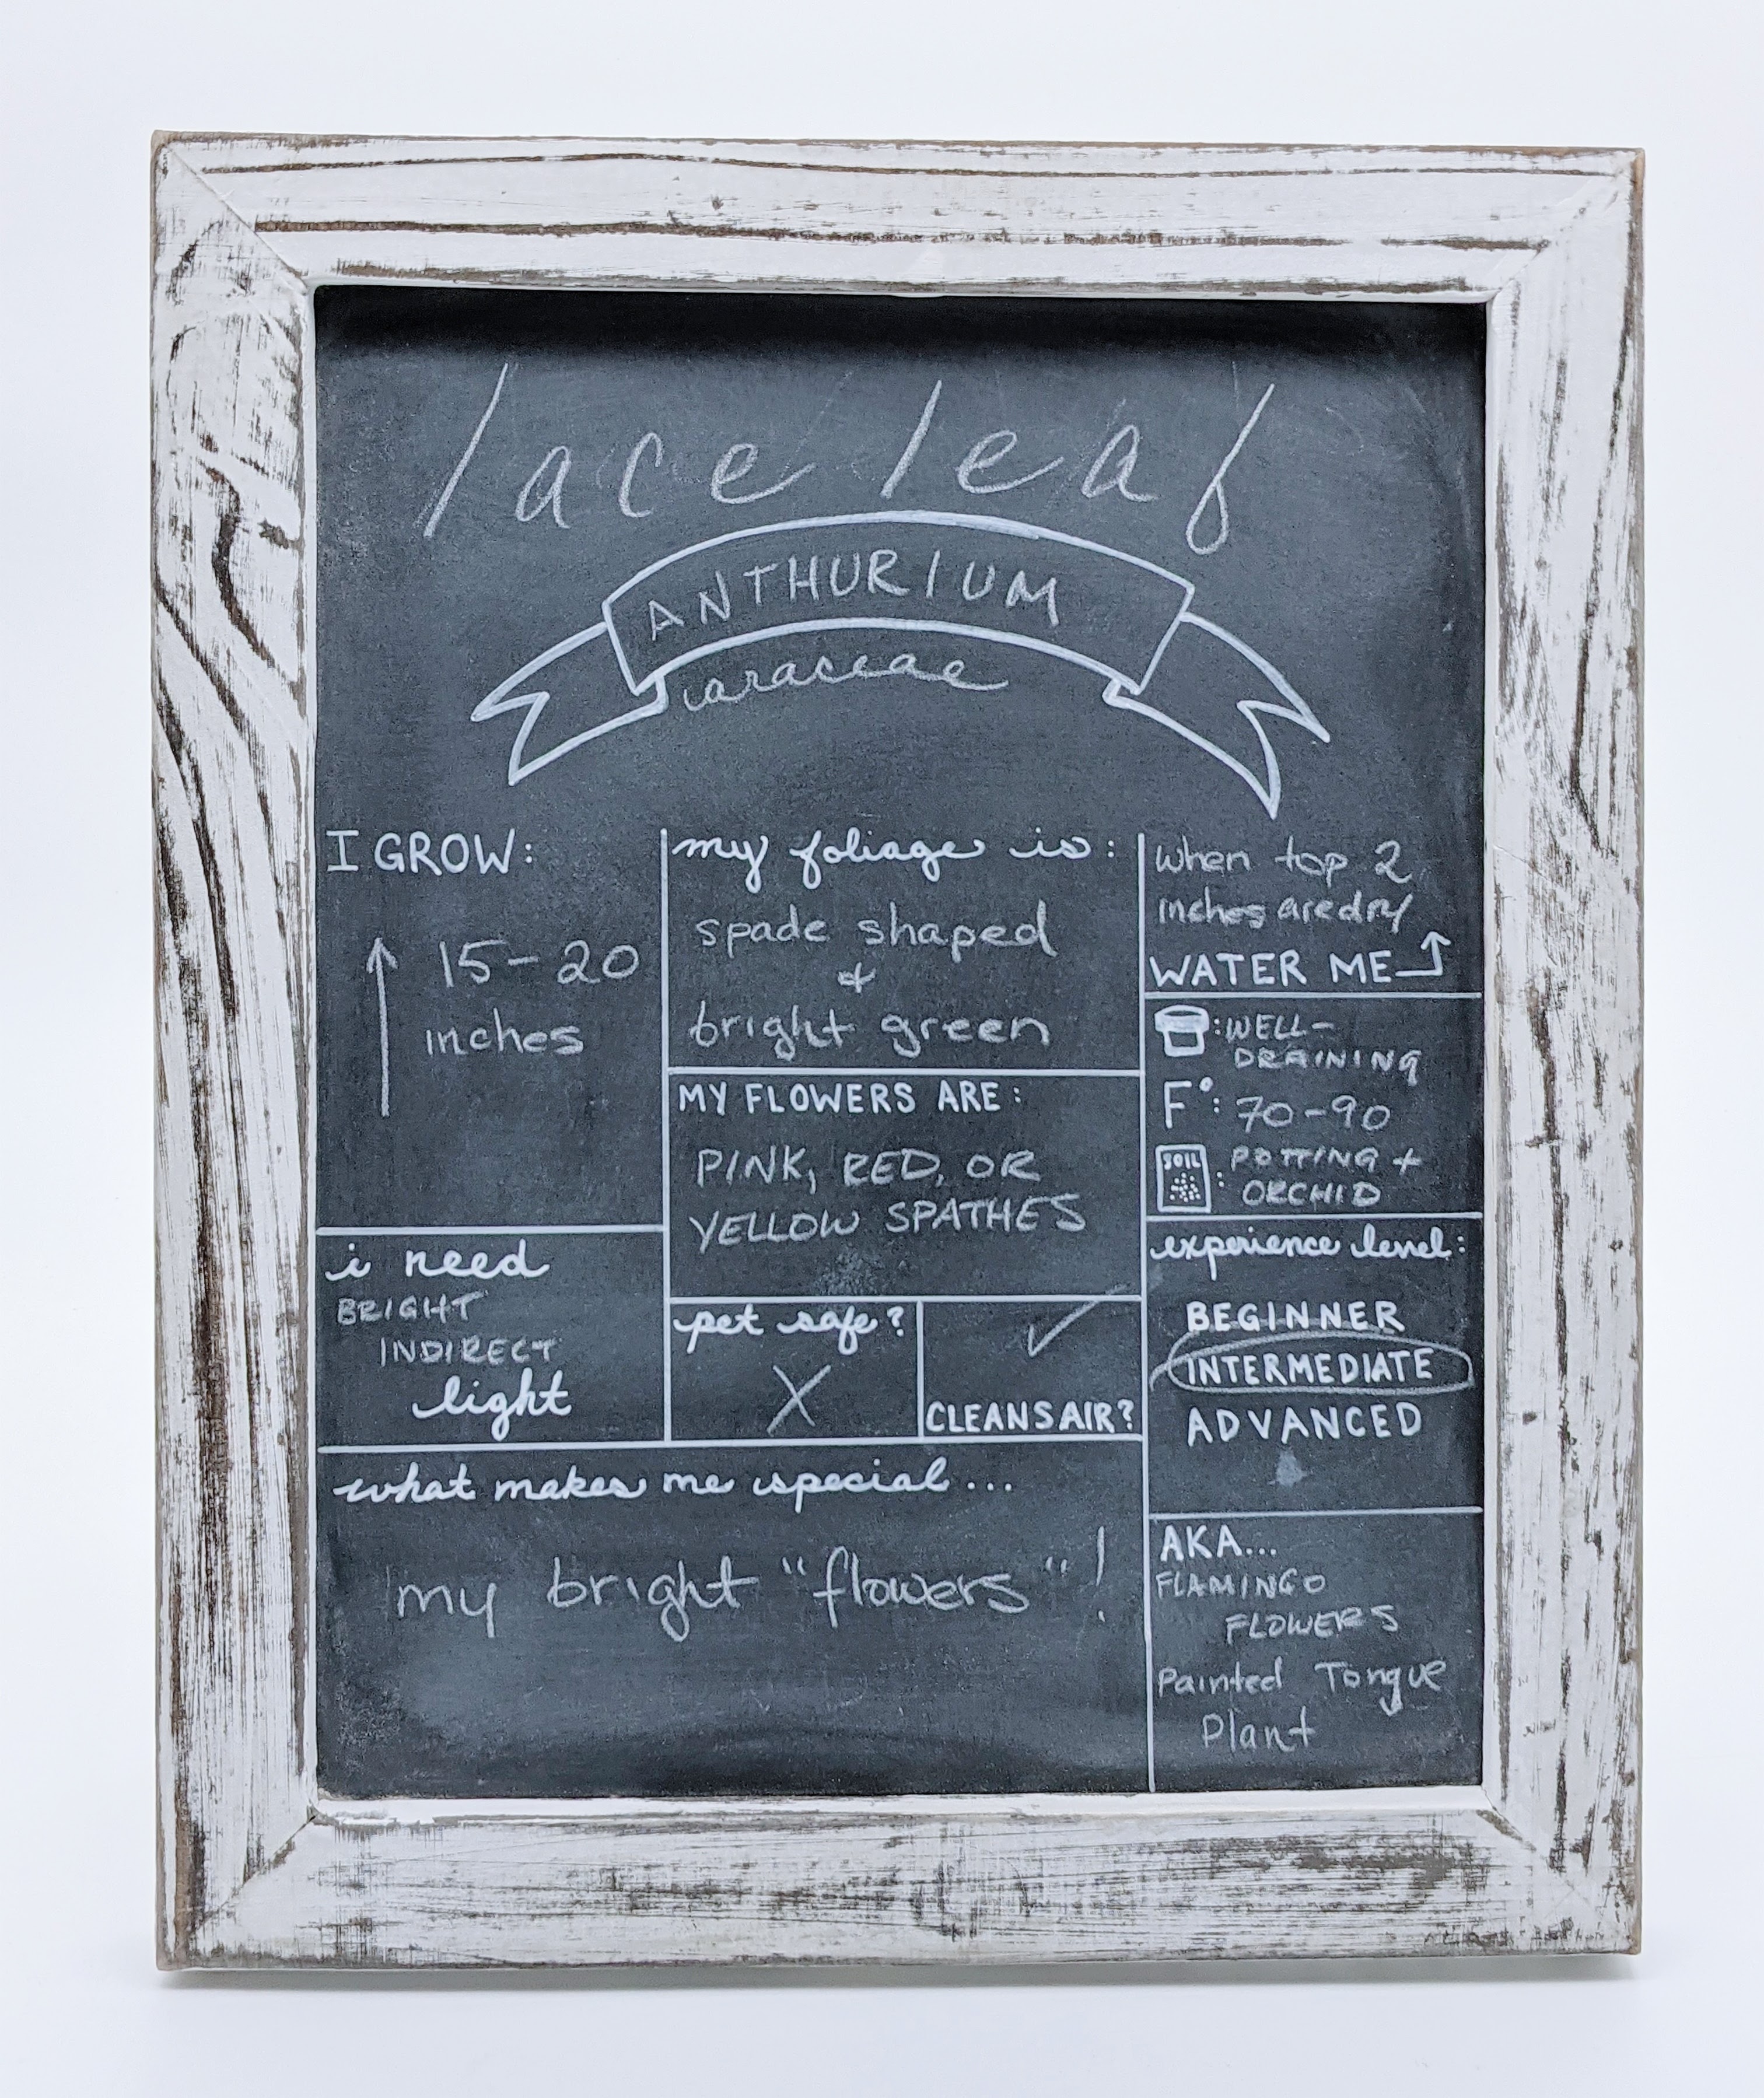 lace leaf
ANTHURIUM
araceae
I GROW:
15-20
inches
my foliage is:
spade shaped
&
bright green
when top 2
inches are dry
WATER ME
MY FLOWERS ARE:
PINK, RED, OR
YELLOW SPATHES
: WELL-
DRAINING
F°: 70-90
SOIL : POTTING +
ORCHID
i need
BRIGHT
INDIRECT
light
pet safe?
X
✓
CLEANS AIR?
experience level:
BEGINNER
INTERMEDIATE
ADVANCED
what makes me special...
my bright "flowers"!
AKA...
FLAMINGO
FLOWERS
Painted Tongue
Plant